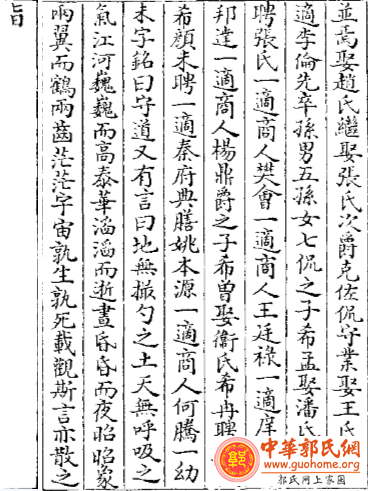 並焉娶趙氏繼娶張氏次爵克佐侃守業娶王氏
適李倫先卒孫男五孫女七侃之子希孟娶潘氏
聘張氏一適商人樊會一適商人王廷祿一適庠
邦達一適商人楊鼎爵之子希曽娶衛氏希冉聘
希顔未聘一適秦府典膳姚本源一適商人何騰一幼
未字銘曰守道又有言曰地無撮勺之土天無呼吸之
氣江河巍巍而高泰華滔滔而逝晝昏昏而夜昭昭象
兩翼而鶴兩齒茫茫宇宙孰生孰死載觀斯言亦散之
旨
郭
中華郭氏網
www.guohome.org
郭氏网上家园